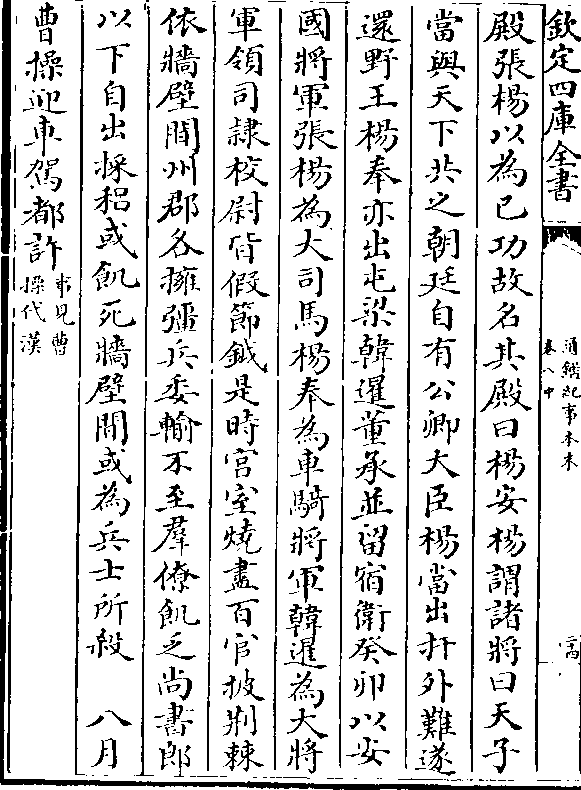 欽定四庫全書
通鑑紀事本末
卷八中
二十四
殿張楊以為己功故名其殿曰楊安楊謂諸將曰天子
當與天下共之朝廷自有公卿大臣楊當出扞外難遂
還野王楊奉亦出屯梁韓暹董承並留宿衛癸卯以安
國將軍張楊為大司馬楊奉為車騎將軍韓暹為大將
軍領司隸校尉皆假節鉞是時宮室燒盡百官披荆棘
依牆壁間州郡各擁彊兵委輸不至羣僚飢乏尚書郎
以下自出採稆或飢死牆壁間或為兵士所殺　八月
曹操迎車駕都許事見曹
操代漢